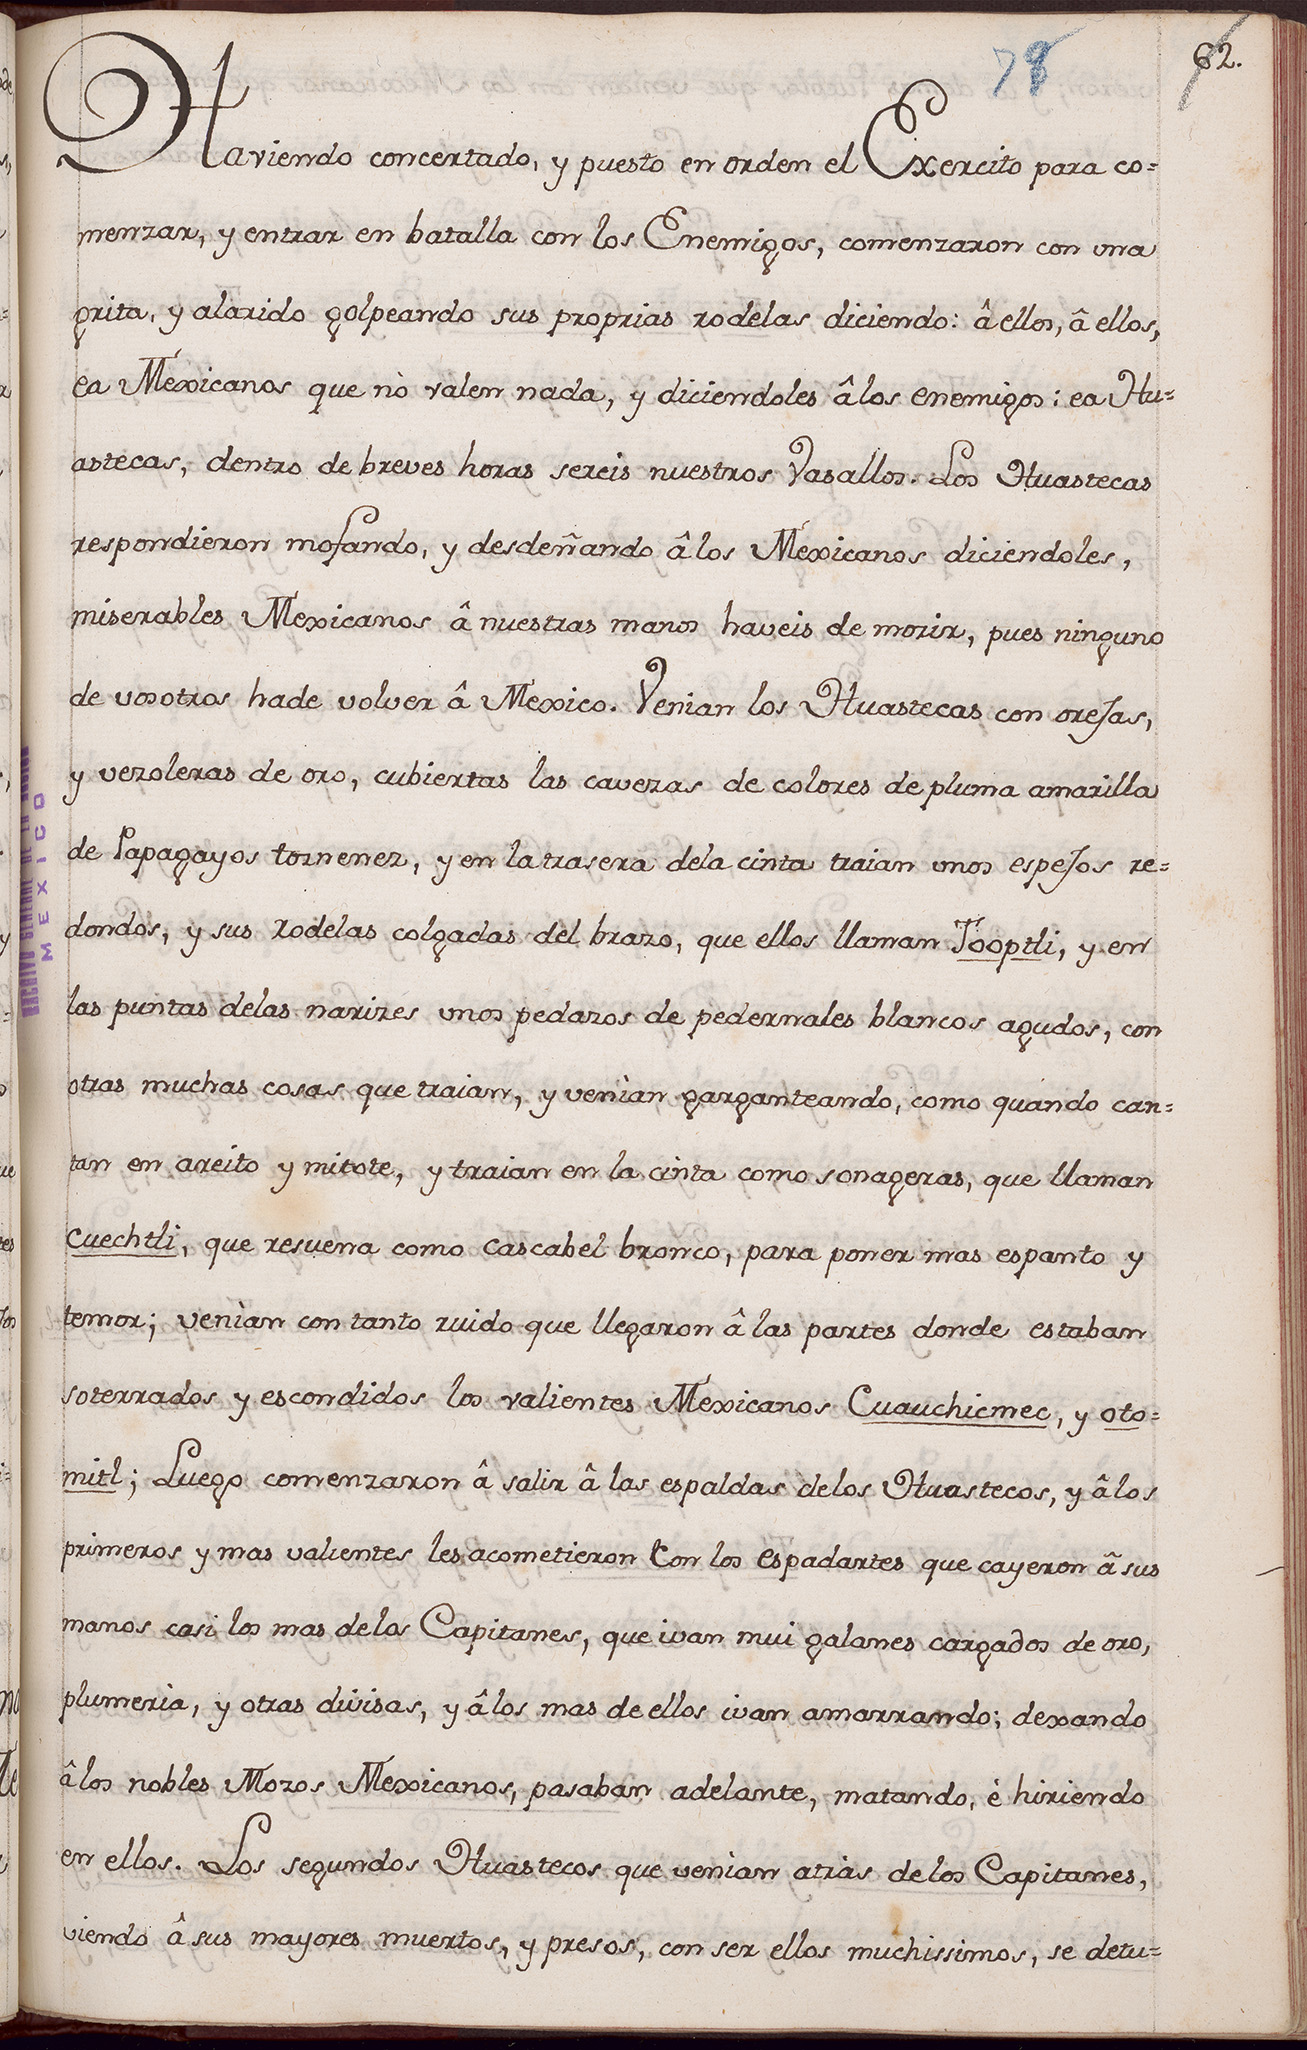 78
62.
Haviendo concertado, y puesto en orden el Exercito para co=
menzar, y entrar en batalla con los Enemigos, comenzaron con vna
grita, y alarido golpeando sus proprias rodelas diciendo: â ellos, â ellos,
ea Mexicanos que nò valen nada, y diciendoles âlos enemigos: ea Hu=
astecas, dentro de breves horas sereis nuestros Vasallos. Los Huastecas
respondieron mofando, y desdeñando âlos Mexicanos diciendoles,
miserables Mexicanos â nuestras manos haveis de morir, pues ninguno
de vosotros hade volver â Mexico. Venian los Huastecas con orejas,
y vezoleras de oro, cubiertas las cavezas de colores de pluma amarilla
de Papagayos toznenez, y en la trasera dela cinta traian vnos espejos re=
dondos, y sus rodelas colgadas del brazo, que ellos llaman Tooptli, y en
las puntas delas narizes vnos pedazos de pedernales blancos agudos, con
otras muchas cosas que traian, y venian garganteando, como quando can=
tan en areito y mitote, y traian en la cinta como sonageras, que llaman
Cuechtli, que resuena como cascabel bronco, para poner mas espanto y
temor; venian con tanto ruido que llegaron â las partes donde estaban
soterrados y escondidos los valientes Mexicanos Cuauchicmec, y oto=
mitl; Luego comenzaron â salir â las espaldas delos Huastecos, y âlos
primeros y mas valientes les acometieron con los espadartes que cayeron â sus
manos casi los mas delos Capitanes, que ivan mui galanes cargados de oro,
plumeria, y otras divisas, y âlos mas de ellos ivan amarrando; dexando
âlos nobles Mozos Mexicanos, pasaban adelante, matando, è hiriendo
en ellos. Los segundos Huastecos que venian atràs delos Capitanes,
viendo â sus mayores muertos, y presos, con ser ellos muchissimos, se detu=
ARCHIVO GENERAL DE LA NACION
MEXICO